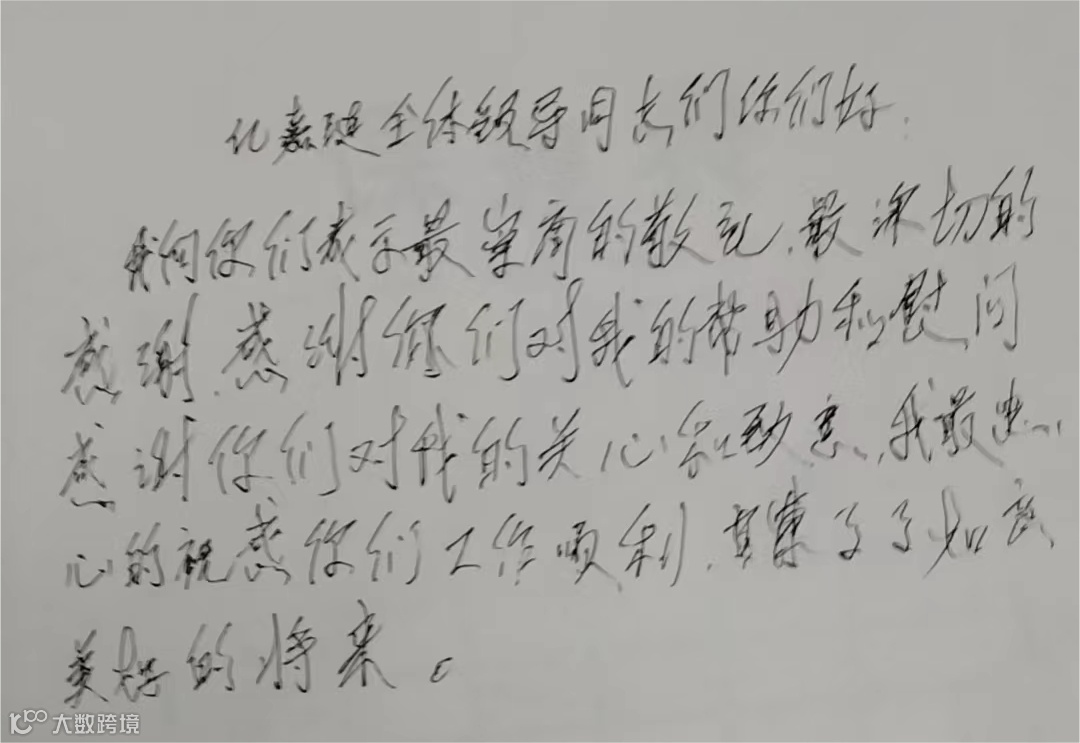 亿嘉琏全体领导同志们你们好.
我向你们表示最崇高的敬意,最深切的
感谢,感谢你们对我的帮助和慰问
感谢你们对我的关心和致意,我最忠
心的祝愿你们工作顺利,
美好的将来。
大数跨境